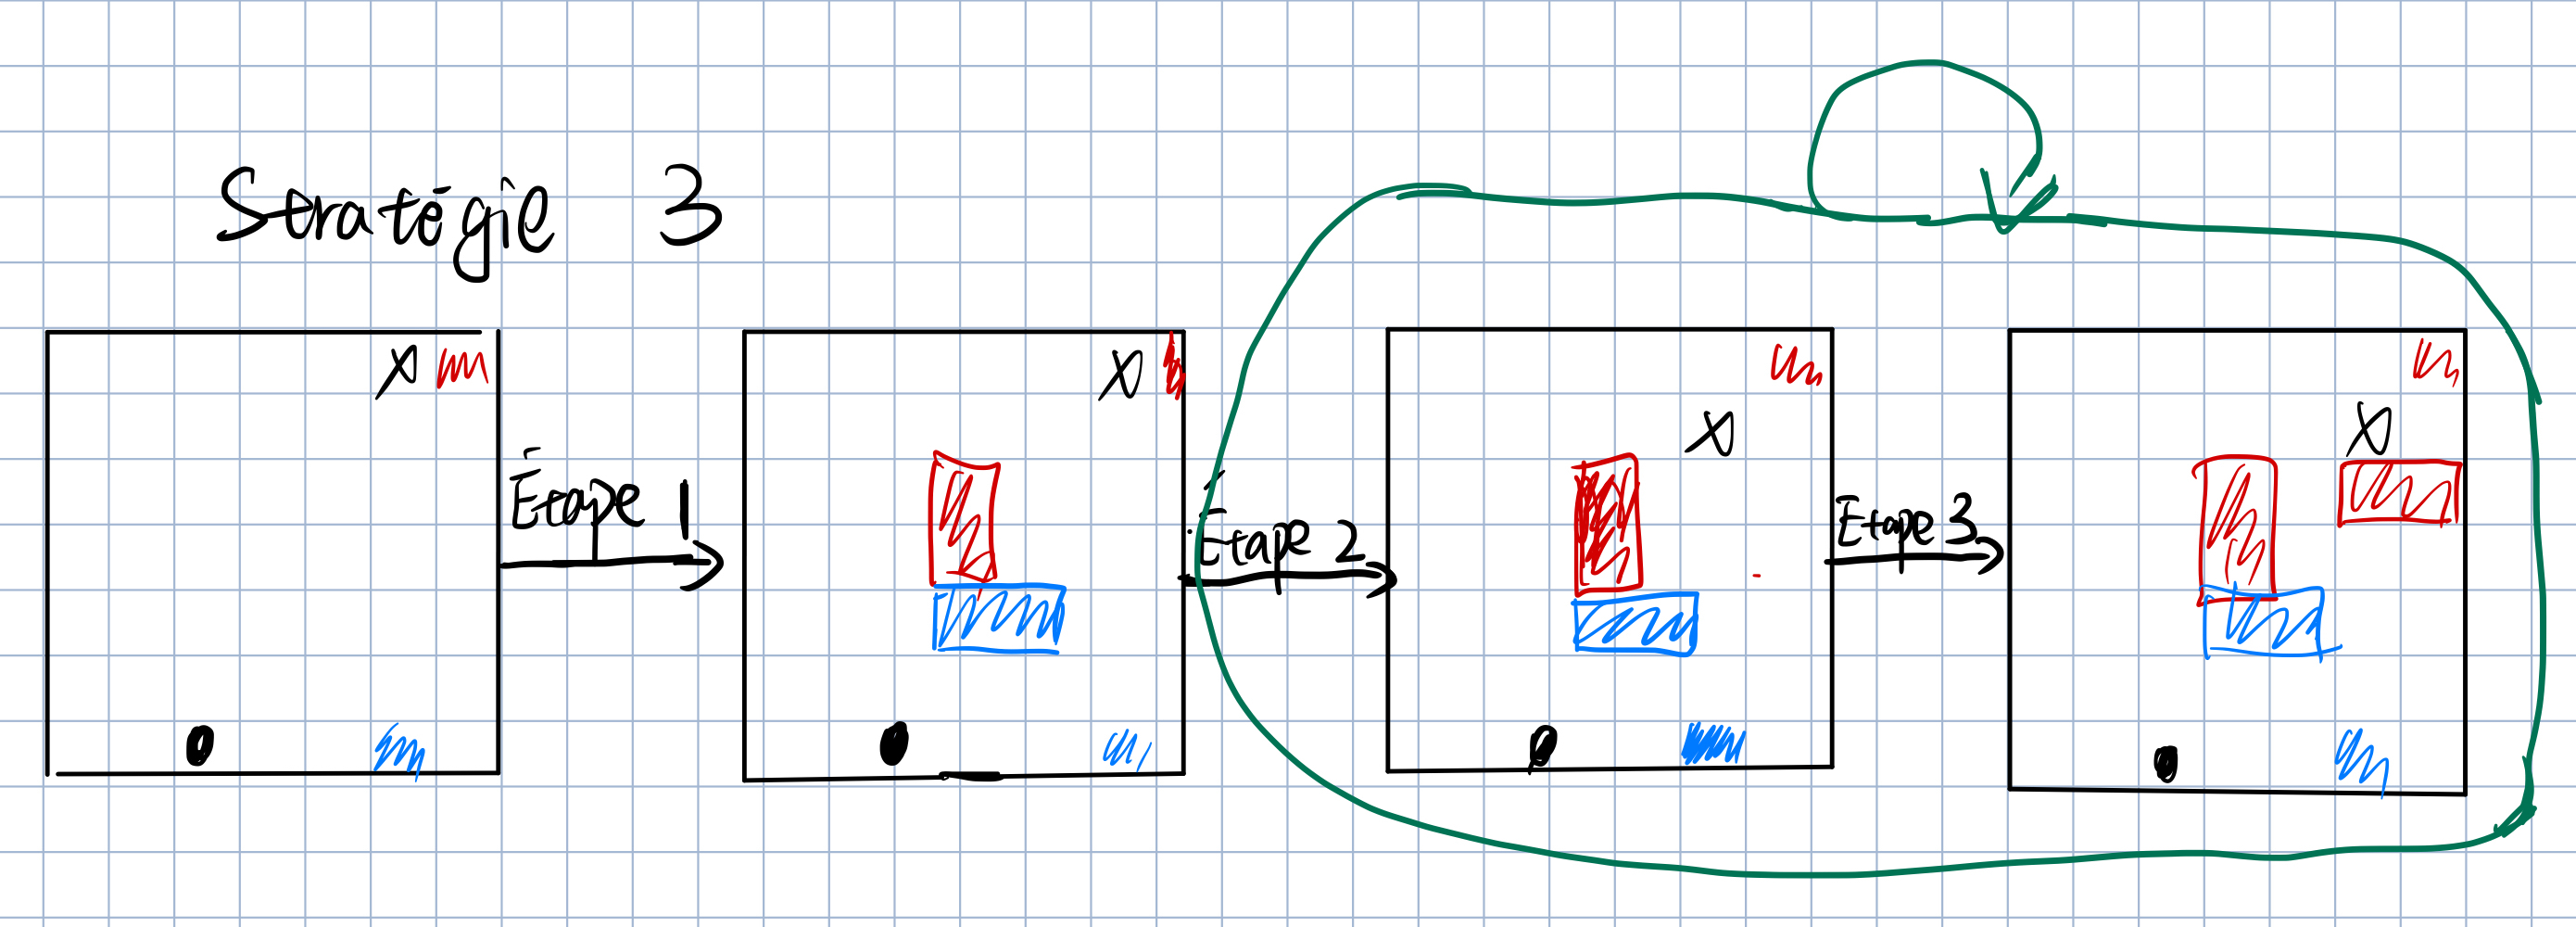 Stratégie 3
X
Étape 1
X
Étape 2
X
Étape 3
X